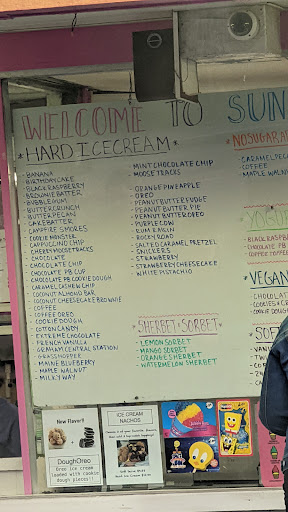 WELCOME TO SUN
* HARD ICECREAM *
BANANA
BIRTHDAY CAKE
BLACK RASPBERRY
BROWNIE BATTER
BUBBLEGUM
BUTTERCRUNCH
BUTTER PECAN
CAKE BATTER
CAMPFIRE SMORES
COOKIE MONSTER
CAPPUCCINO CHIP
CHERRY MOOSETRACKS
CHOCOLATE
CHOCOLATE CHIP
CHOCOLATE PB CUP
CHOCOLATE PB COOKIE DOUGH
CARAMEL CASHEW CHIP
COCONUT ALMOND BAR
COCONUT CHEESECAKE BROWNIE
COFFEE
COFFEE OREO
COOKIE DOUGH
COTTON CANDY
EXTREME CHOCOLATE
FRENCH VANILLA
GRAHAM CENTRAL STATION
GRASSHOPPER
MAINE BLUEBERRY
MAPLE WALNUT
MILKY WAY
MINT CHOCOLATE CHIP
MOOSE TRACKS
ORANGE PINEAPPLE
OREO
PEANUT BUTTER FUDGE
PEANUT BUTTER PIE
PEANUT BUTTER OREO
PURPLE COW
RUM RAISIN
ROCKY ROAD
SALTED CARAMEL PRETZEL
SNICKERS
STRAWBERRY
STRAWBERRY CHEESECAKE
WHITE PISTACHIO
SHERBET & SORBET
LEMON SORBET
MANGO SORBET
ORANGE SHERBET
WATERMELON SHERBET
NO SUGAR A
CARAMEL PECA
COFFEE
MAPLE WALNU
YOGU
BLACK RASPB
COFFEE TOFFEE
VEGAN
CHOCOLAT
COOKIES & C
COOKIE DOUG
SOF
VAN
New Flavor!!
DoughOreo
Oreo ice cream
loaded with cookie
dough pieces!!
ICE CREAM
NACHOS